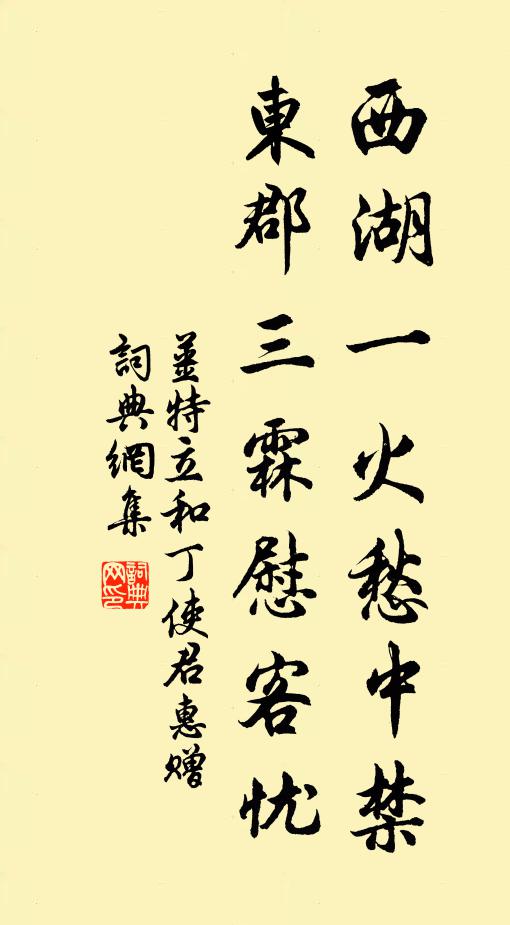 西湖一火愁中禁
東郡三霖慰客忧
薑特立和丁使君惠赠
詞典網集
詞典网印